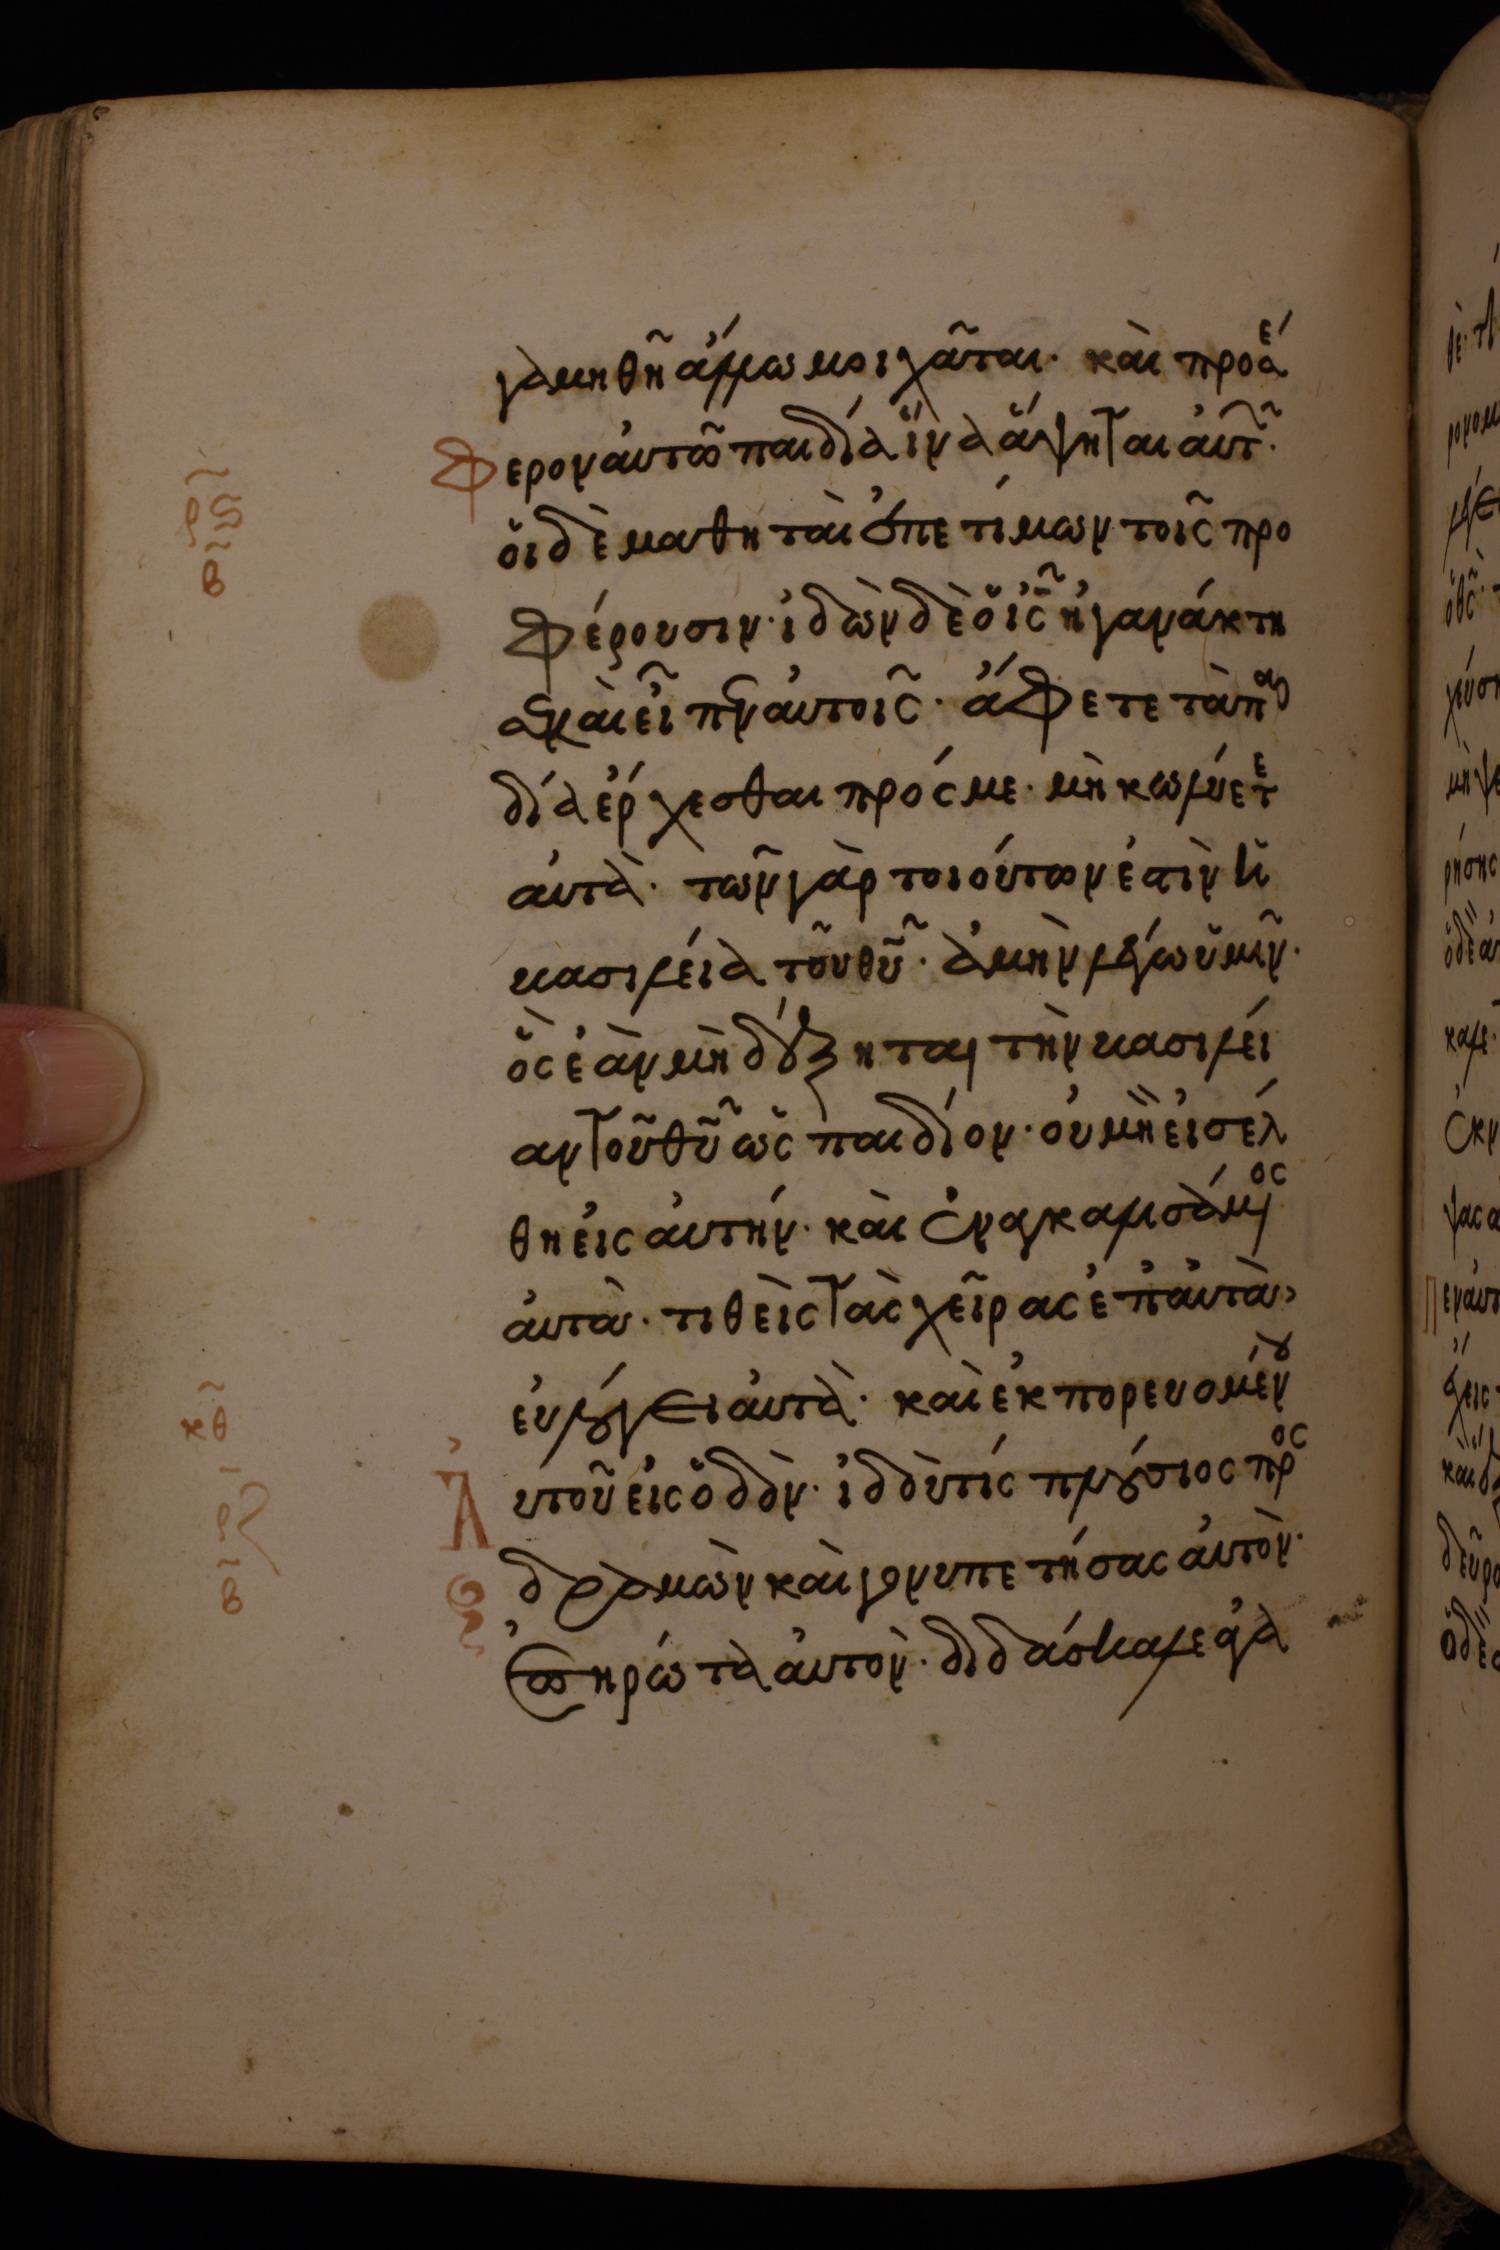 γαμηθῆ ἄλλω μοιχᾶται· καὶ προσέ
φερον αὐτῶ παιδία ἵνα ἅψηται αὐτῶν·
οἱ δὲ μαθηταὶ ἐπετίμων τοῖς προ
φέρουσιν· ἰδὼν δὲ ὁ ις̃ ἠγανάκτη
σε καὶ εἶπεν αὐτοῖς· ἄφετε τὰ παι
δία ἔρχεσθαι πρός με· μὴ κωλύετε
αὐτὰ· τῶν γὰρ τοιούτων ἐστὶν ἡ
βασιλεία τοῦ θυ̃· ἀμὴν λέγω ὑμῖν·
ὃς ἐὰν μὴ δέξηται τὴν βασιλεί
αν τοῦ θυ̃ ὡς παιδίον· οὐ μὴ εἰσέλ
θη εἰς αὐτήν· καὶ ἐναγκαλισάμενος
αὐτὰ· τιθεὶς τὰς χεῖρας ἐπ' αὐτὰ
εὐλόγει αὐτὰ· καὶ ἐκπορευομένου
Ἀυτοῦ εἰς ὁδὸν· ἰδού τίς πλούσιος προσ
δραμὼν καὶ γονυπετήσας αὐτὸν·
ἐπηρώτα αὐτὸν· διδάσκαλε ἀγα
ρς
β
κθ
ρζ
β